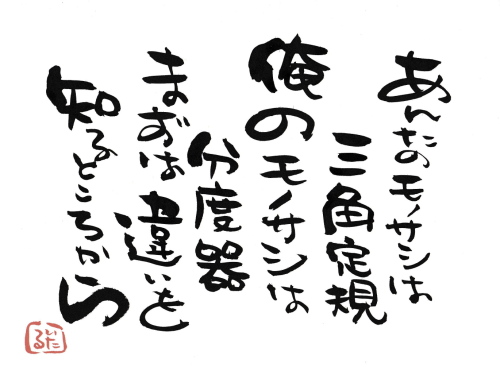 あんたのモノサシは
三角定規
俺のモノサシは
分度器
まずは違いを
知るところから